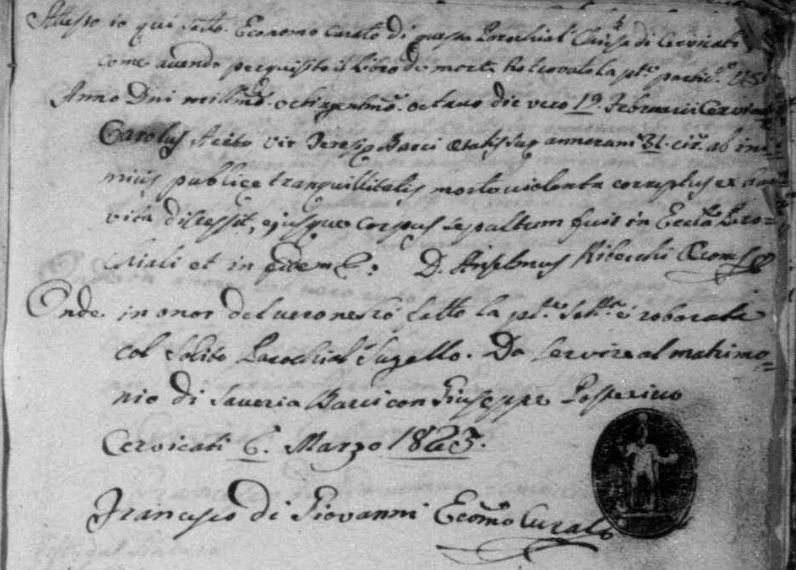 Attesto io qui sotto. Economo Curato di questa Parochial Chiesa di Cervicati
come avendo perquisito il Libro de morti ho trovato la pte partic.
Anno Dni millmo. octingentmo. octavo die vero 19 Februarii Cervicati
Carolus Acito vir Teresiæ Barci ætatis suæ annorum 31. cir. ab ini-
micis publicæ tranquillitatis morte violenta correptus ex hac
vita discessit, ejusque corpus sepultum fuit in Eccla Paro-
chiali et in fidem &: D. Anselmus Ribecchi Œcoms
Onde in onor del vero ne ho fatto la pte. roborata
col solito Parochial Sugello. Da servire al matrimo=
nio di Saveria Barci con Giuseppe Posterivo
Cervicati 6. Marzo 1823.
Francesco di Giovanni Ecōmo Curato